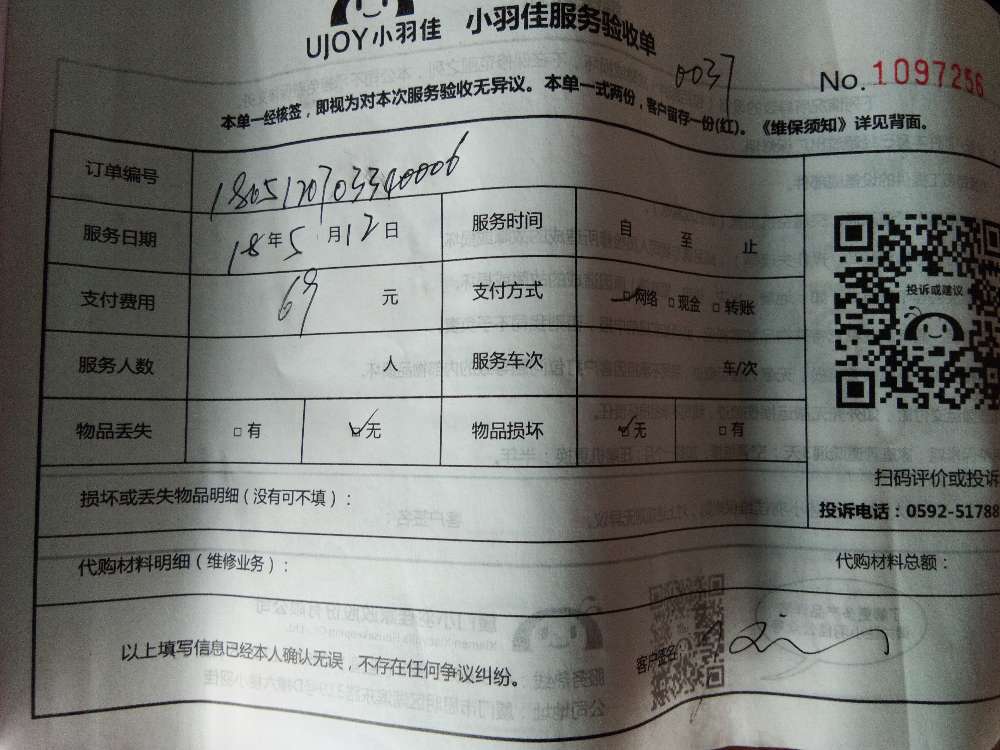 UJOY小羽佳 小羽佳服务验收单
0037
No. 1097256
本单一经核签，即视为对本次服务验收无异议。本单一式两份，客户留存一份(红)。《维保须知》详见背面。
订单编号 1805120703340006
服务日期 18年5月12日 服务时间 自 至 止
支付费用 69 元 支付方式 □网络 □现金 □转账
投诉或建议
服务人数 人 服务车次 车/次
物品丢失 □有 ☑无 物品损坏 ☑无 □有
扫码评价或投诉
损坏或丢失物品明细（没有可不填）：
投诉电话：0592-51788
代购材料明细（维修业务）： 代购材料总额：
以上填写信息已经本人确认无误，不存在任何争议纠纷。 客户签名：